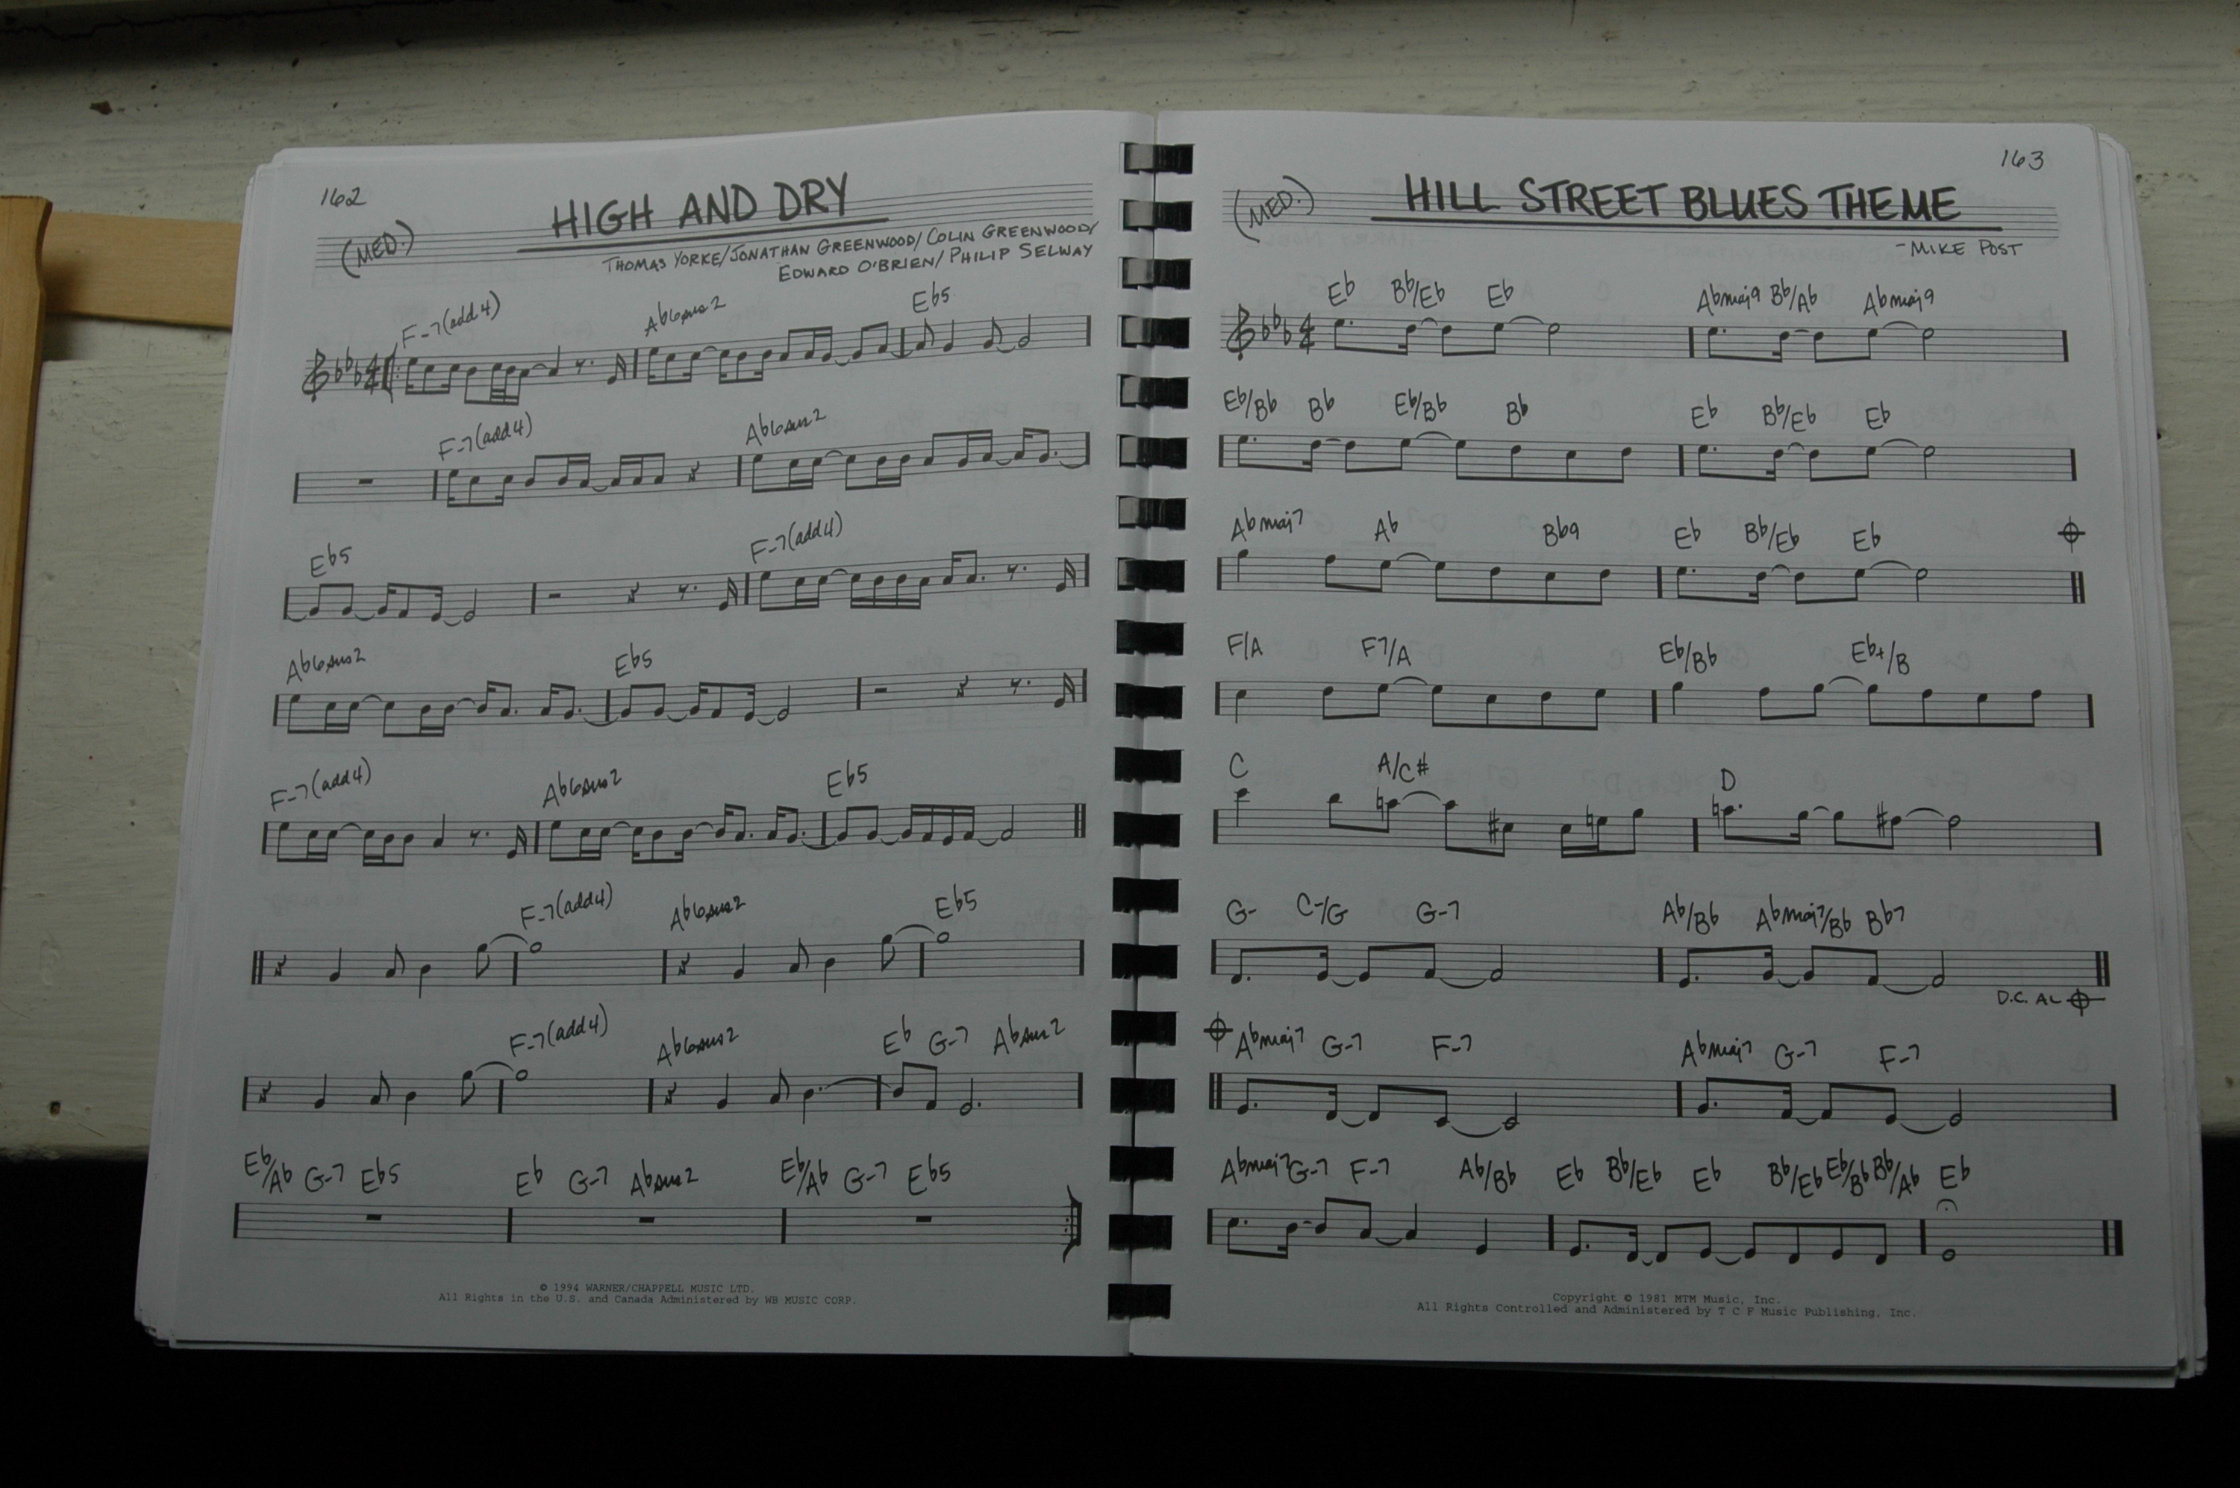 162
HIGH AND DRY
(MED.)
THOMAS YORKE/JONATHAN GREENWOOD/COLIN GREENWOOD/
EDWARD O'BRIEN/PHILIP SELWAY
F-7(add4) Ab6sus2 Eb5
F-7(add4) Ab6sus2
Eb5 F-7(add4)
Ab6sus2 Eb5
F-7(add4) Ab6sus2 Eb5
F-7(add4) Ab6sus2 Eb5
F-7(add4) Ab6sus2 Eb G-7 Absus2
Eb/Ab G-7 Eb5 Eb G-7 Absus2 Eb/Ab G-7 Eb5
© 1994 WARNER/CHAPPELL MUSIC LTD.
All Rights in the U.S. and Canada Administered by WB MUSIC CORP.
163
(MED.)
HILL STREET BLUES THEME
-MIKE POST
Eb Bb/Eb Eb Abmaj9 Bb/Ab Abmaj9
Eb/Bb Bb Eb/Bb Bb Eb Bb/Eb Eb
Abmaj7 Ab Bb9 Eb Bb/Eb Eb
F/A F7/A Eb/Bb Eb+/B
C A/C# D
G- C-/G G-7 Ab/Bb Abmaj7/Bb Bb7
D.C. AL
Abmaj7 G-7 F-7 Abmaj7 G-7 F-7
Abmaj7 G-7 F-7 Ab/Bb Eb Bb/Eb Eb Bb/Eb Eb/Bb Bb/Ab Eb
Copyright © 1981 MTM Music, Inc.
All Rights Controlled and Administered by T C F Music Publishing, Inc.